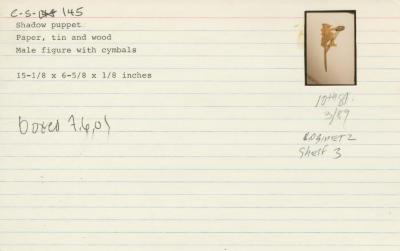 C-S- 145
Shadow puppet
Paper, tin and wood
Male figure with cymbals
15-1/8 x 6-5/8 x 1/8 inches
boxed 7.6.01
10th fl.
3/89
CABINET 2
Shelf 3